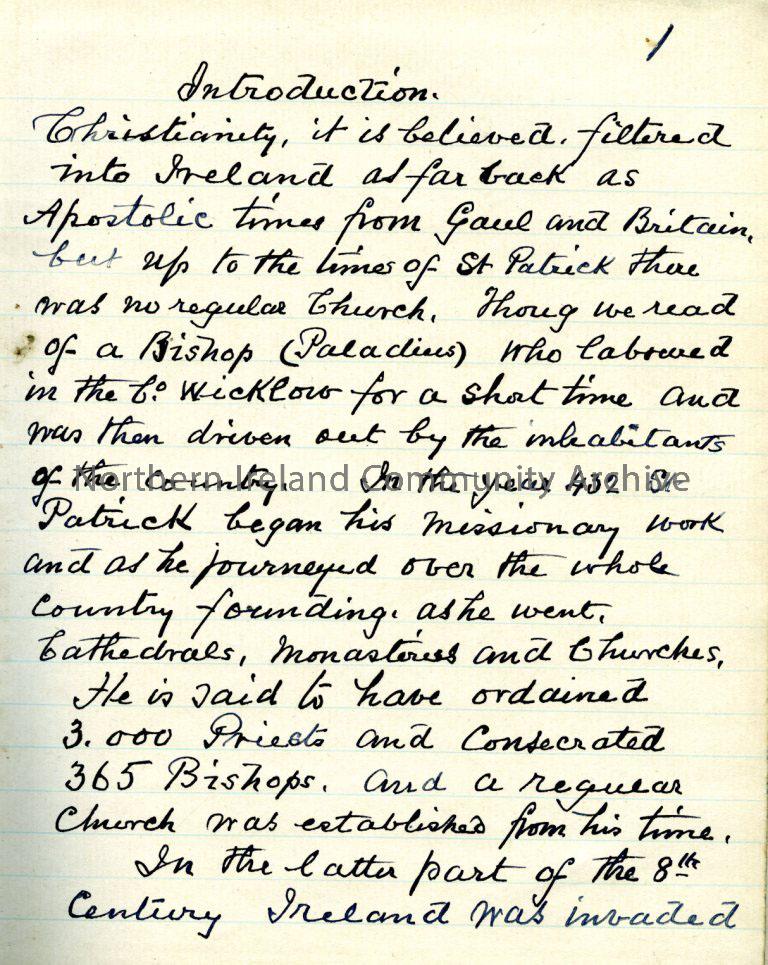 1
Introduction.
Christianity, it is believed. filtered
into Ireland as far back as
Apostolic times from Gaul and Britain.
but up to the times of St Patrick there
was no regular Church. Thoug we read
of a Bishop (Paladius) who laboured
in the Co. Wicklow for a short time and
was then driven out by the inhabitants
of the county. In the year 432 St
Northern Ireland Community Archive
Patrick began his missionary work
and as he journeyed over the whole
country founding. as he went.
Cathedrals, Monasteries and Churches.
He is said to have ordained
3.000 Priests and Consecrated
365 Bishops. and a regular
Church was established from his time.
In the latter part of the 8th
Century Ireland was invaded